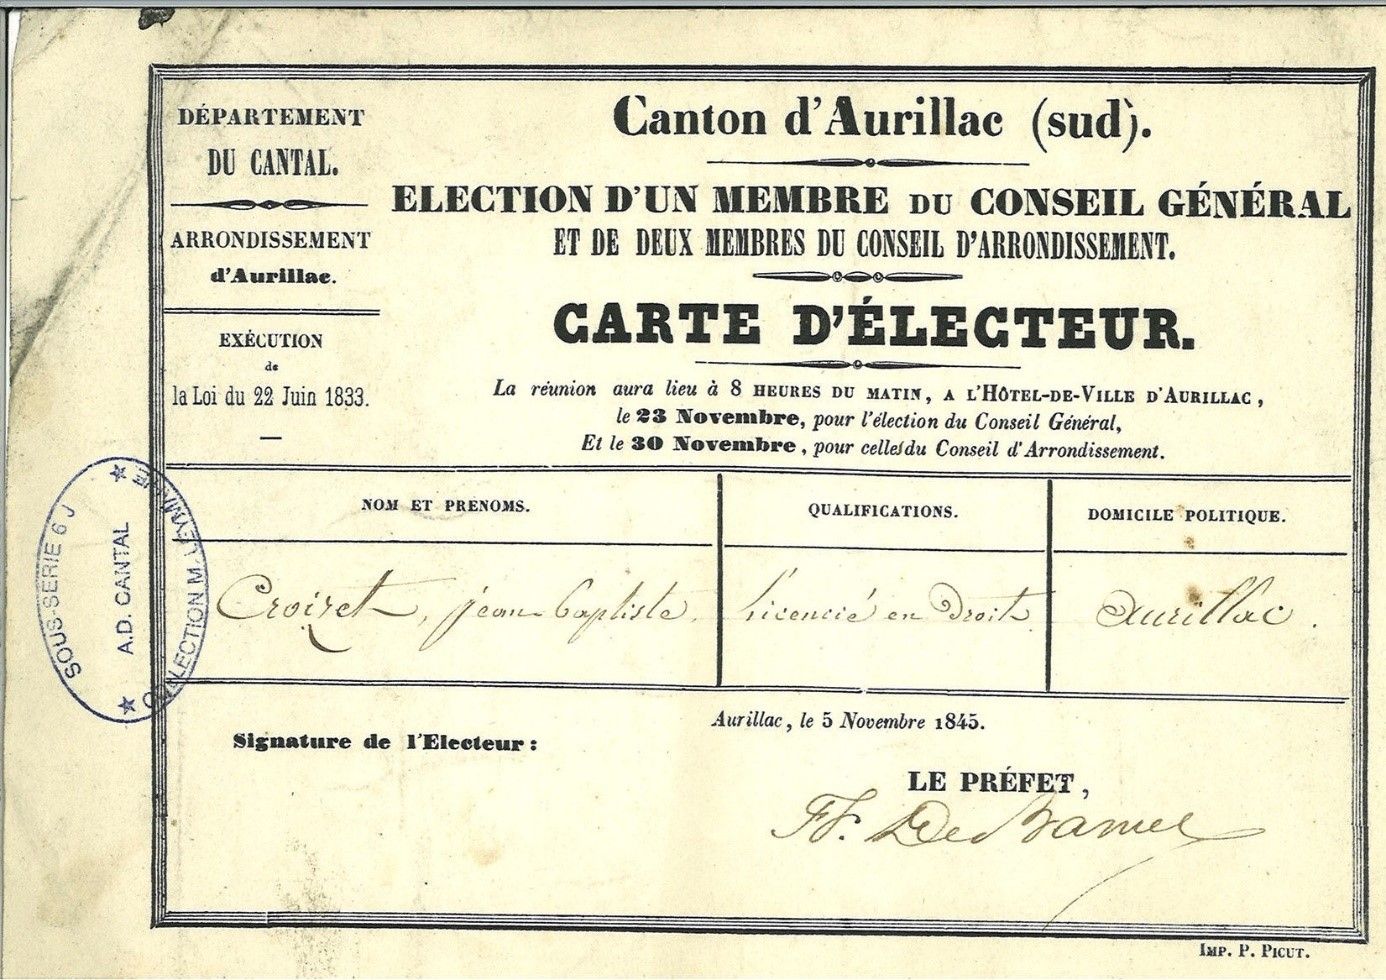 DÉPARTEMENT
DU CANTAL.
ARRONDISSEMENT
d'Aurillac.
EXÉCUTION
de
la Loi du 22 Juin 1833.
Canton d'Aurillac (sud).
ELECTION D'UN MEMBRE DU CONSEIL GÉNÉRAL
ET DE DEUX MEMBRES DU CONSEIL D'ARRONDISSEMENT.
CARTE D'ÉLECTEUR.
La réunion aura lieu à 8 HEURES DU MATIN, A L'HÔTEL-DE-VILLE D'AURILLAC,
le 23 Novembre, pour l'élection du Conseil Général,
Et le 30 Novembre, pour celle du Conseil d'Arrondissement.
NOM ET PRENOMS.
QUALIFICATIONS.
DOMICILE POLITIQUE.
Croizet, jean-Baptiste.
Licencié en Droit
aurillac.
SOUS-SERIE 6 J
A.D. CANTAL
COLLECTION M.
Aurillac, le 5 Novembre 1845.
Signature de l'Electeur :
LE PRÉFET,
IMP. P. PICUT.